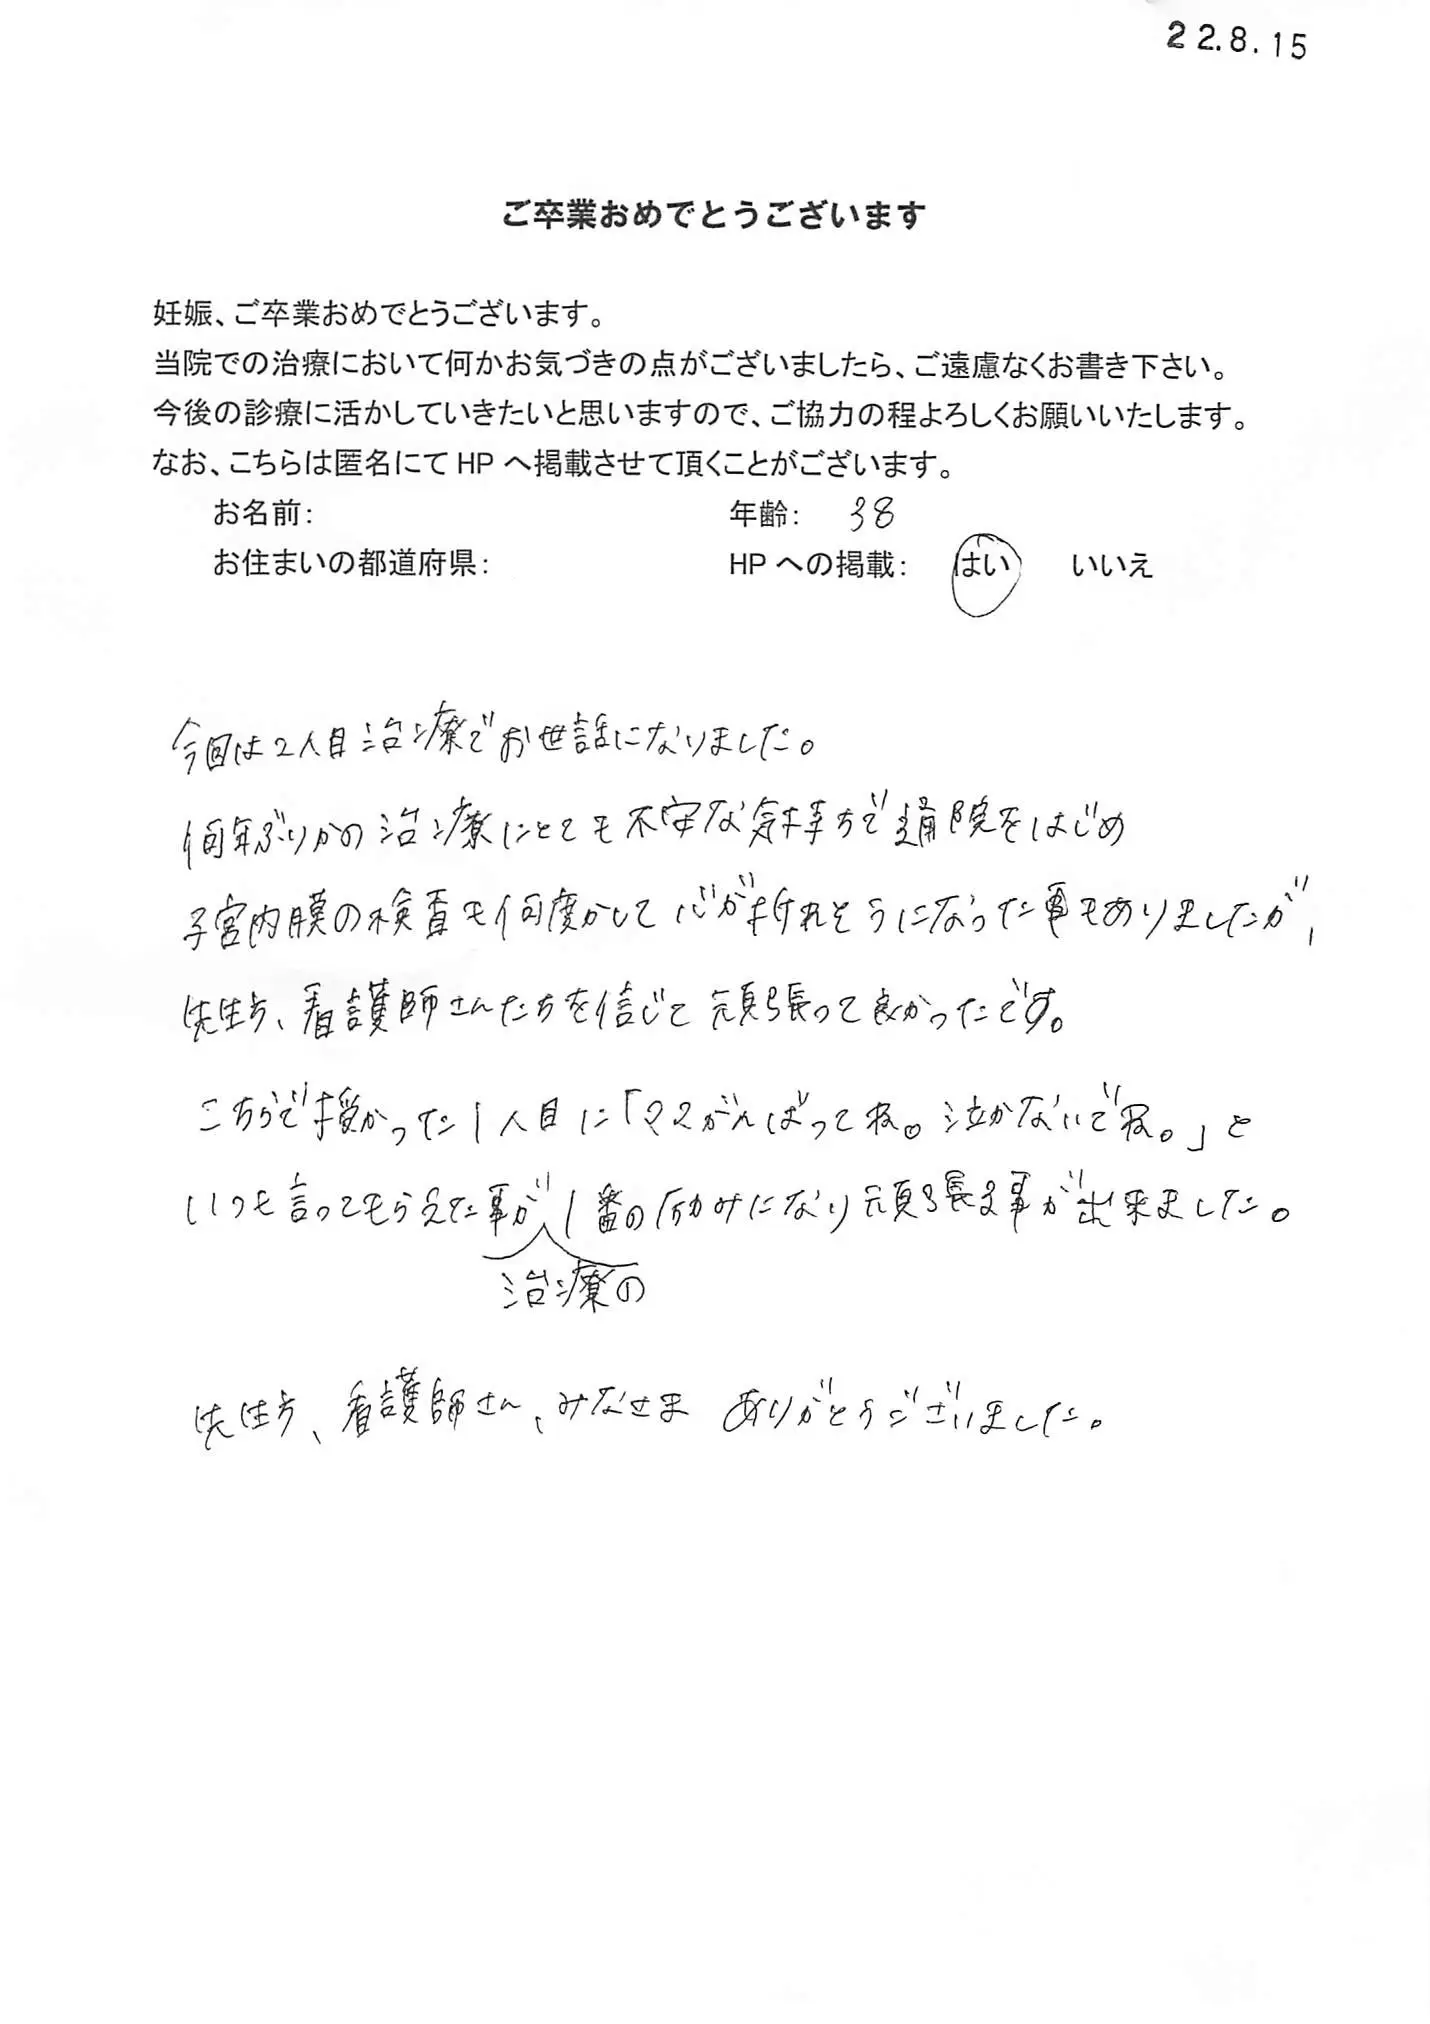 22.8.15
ご卒業おめでとうございます
妊娠、ご卒業おめでとうございます。
当院での治療において何かお気づきの点がございましたら、ご遠慮なくお書き下さい。
今後の診療に活かしていきたいと思いますので、ご協力の程よろしくお願いいたします。
なお、こちらは匿名にて HP へ掲載させて頂くことがございます。
お名前: 年齢: 38
お住まいの都道府県: HP への掲載: はい いいえ
今回は2人目治療でお世話になりました。
何年ぶりかの治療にとても不安な気持ちで通院をはじめ
子宮内膜の検査も何度かして心が折れそうになった事もありましたが、
先生方、看護師さんたちを信じて頑張って良かったです。
こちらで授かった1人目に「ママがんばってね。泣かないでね。」と
いつも言ってもらえた事が1番の励みになり頑張る事が出来ました。
治療の
先生方、看護師さん、みなさま ありがとうございました。